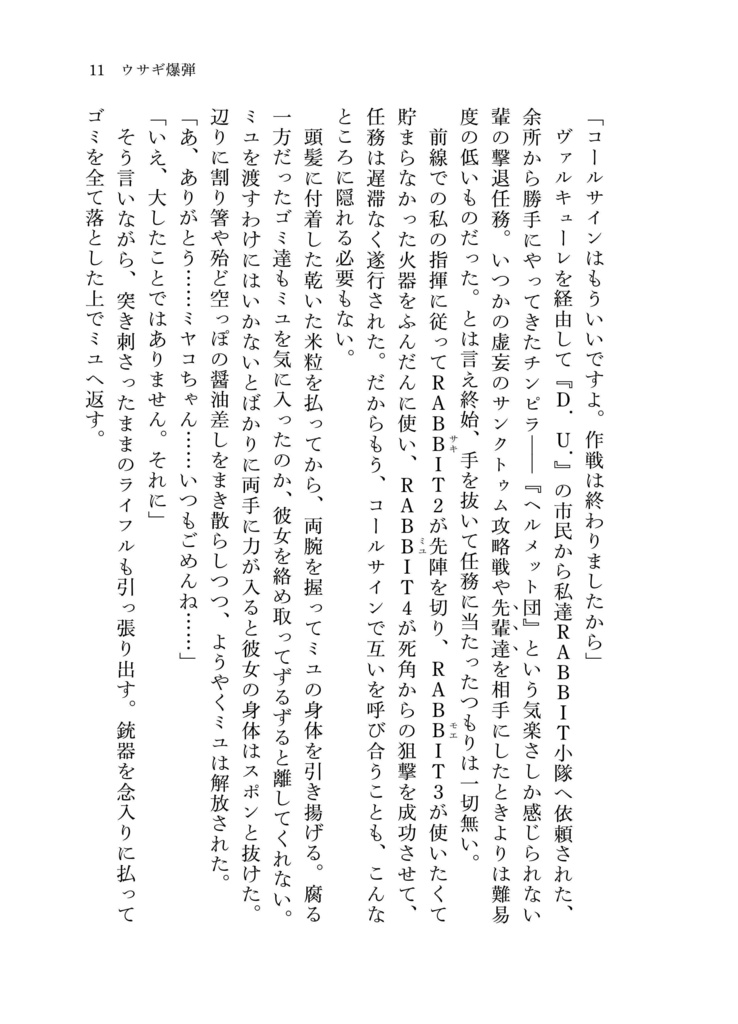 11　ウサギ爆弾
「コールサインはもういいですよ。作戦は終わりましたから」
　ヴァルキューレを経由して『D．U．』の市民から私達RABBIT小隊へ依頼された、
余所から勝手にやってきたチンピラ――『ヘルメット団』という気楽さしか感じられない
輩の撃退任務。いつかの虚妄のサンクトゥム攻略戦や先輩達を相手にしたときよりは難易
度の低いものだった。とは言え終始、手を抜いて任務に当たったつもりは一切無い。
　前線での私の指揮に従ってRABBIT2（サキ）が先陣を切り、RABBIT3（モエ）が使いたくて
貯まらなかった火器をふんだんに使い、RABBIT4（ミユ）が死角からの狙撃を成功させて、
任務は遅滞なく遂行された。だからもう、コールサインで互いを呼び合うことも、こんな
ところに隠れる必要もない。
　頭髪に付着した乾いた米粒を払ってから、両腕を握ってミユの身体を引き揚げる。腐る
一方だったゴミ達もミユを気に入ったのか、彼女を絡め取ってずるずると離してくれない。
ミユを渡すわけにはいかないとばかりに両手に力が入ると彼女の身体はスポンと抜けた。
辺りに割り箸や殆ど空っぽの醤油差しをまき散らしつつ、ようやくミユは解放された。
「あ、ありがとう……ミヤコちゃん……いつもごめんね……」
「いえ、大したことではありません。それに」
　そう言いながら、突き刺さったままのライフルも引っ張り出す。銃器を念入りに払って
ゴミを全て落とした上でミユへ返す。